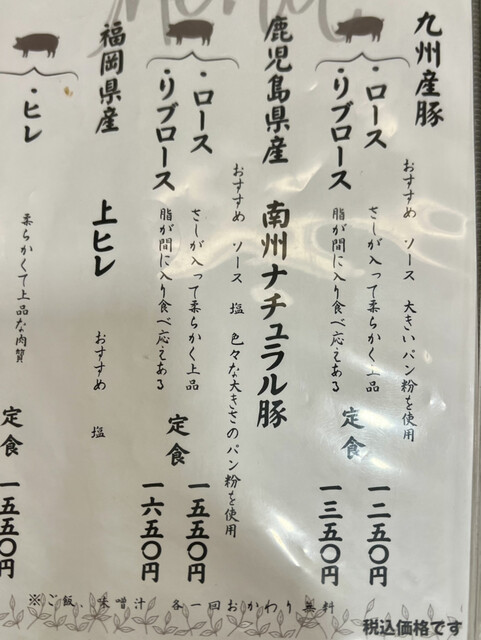 Menu
九州産豚
おすすめ ソース 大きいパン粉を使用
・ロース さしが入って柔らかく上品 定食 一二五〇円
・リブロース 脂が間に入り食べ応えある 一三五〇円
鹿児島県産 南州ナチュラル豚
おすすめ ソース 塩 色々な大きさのパン粉を使用
・ロース さしが入って柔らかく上品 定食 一五五〇円
・リブロース 脂が間に入り食べ応えある 一六五〇円
福岡県産 上ヒレ おすすめ 塩
・ヒレ 柔らかくて上品な肉質 定食 一五五〇円
※ご飯、味噌汁 各一回おかわり無料
税込価格です